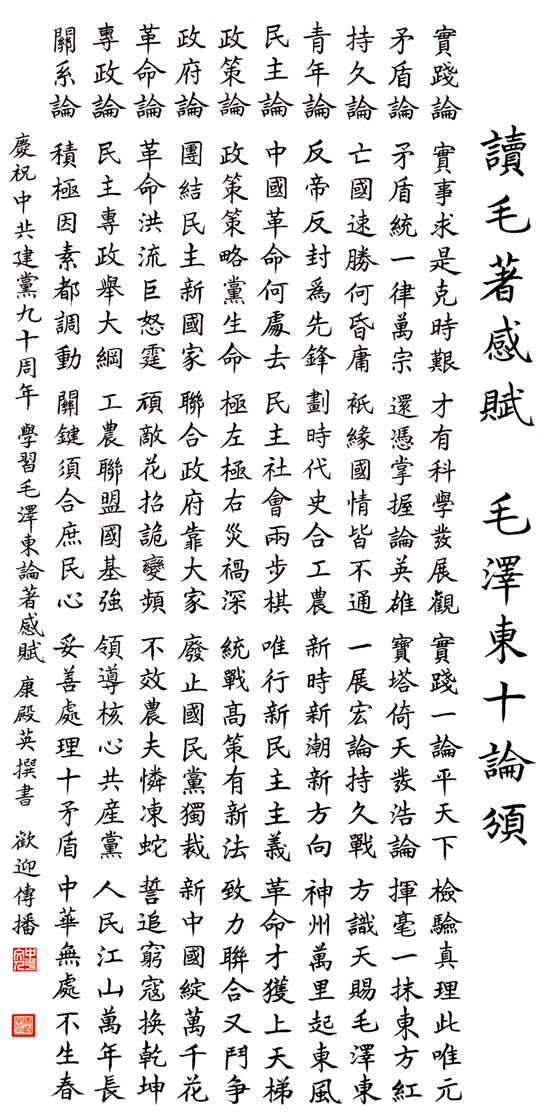 讀毛著感賦 毛澤東十論頌
實踐論 實事求是克時艱 才有科學發展觀 實踐一論平天下 檢驗真理此唯元
矛盾論 矛盾統一律萬宗 還憑掌握論英雄 寶塔倚天發浩論 揮毫一抹東方紅
持久論 亡國速勝何昏庸 祇緣國情皆不通 一展宏論持久戰 方識天賜毛澤東
青年論 反帝反封爲先鋒 劃時代史合工農 新時新潮新方向 神州萬里起東風
民主論 中國革命何處去 民主社會兩步棋 唯行新民主主義 革命才獲上天梯
政策論 政策策略黨生命 極左極右災禍深 統戰高策有新法 致力聯合又鬥爭
政府論 團結民主新國家 聯合政府靠大家 廢止國民黨獨裁 新中國綻萬千花
革命論 革命洪流巨怒霆 頑敵花招詭變頻 不效農夫憐凍蛇 誓追窮寇換乾坤
專政論 民主專政舉大綱 工農聯盟國基強 領導核心共産黨 人民江山萬年長
關系論 積極因素都調動 關鍵須合庶民心 妥善處理十矛盾 中華無處不生春
慶祝中共建黨九十周年 學習毛澤東論著感賦 康殿英撰書 歡迎傳播